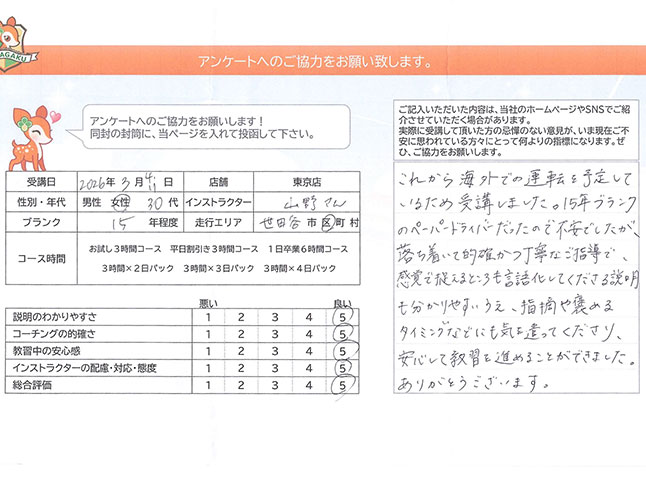 AGAKU
アンケートへのご協力をお願い致します。
アンケートへのご協力をお願いします！
同封の封筒に、当ページを入れて投函して下さい。
受講日 2026年 3月 日 店舗 東京店
性別・年代 男性 女性 30代 インストラクター 山野さん
ブランク 15 年程度 走行エリア 世田谷 市 区 町 村
コース時間
お試し3時間コース 平日割引き3時間コース 1日卒業6時間コース
3時間×2日パック 3時間×3日パック 3時間×4日パック
悪い 良い
説明のわかりやすさ 1 2 3 4 5
コーチングの的確さ 1 2 3 4 5
教習中の安心感 1 2 3 4 5
インストラクターの配慮・対応・態度 1 2 3 4 5
総合評価 1 2 3 4 5
ご記入いただいた内容は、当社のホームページやSNSでご紹
介させていただく場合があります。
実際に受講して頂いた方の忌憚のない意見が、いま現在ご不
安に思われている方々にとって何よりの指標になります。ぜ
ひ、ご協力をお願いします。
これから海外での運転を予定して
いるため受講しました。15年ブランク
のペーパードライバーだったので不安でしたが、
落ち着いて的確かつ丁寧なご指導で、
感覚で捉えるところも言語化してくださる説明
も分かりやすいうえ、指摘や褒める
タイミングなどにも気を遣ってくださり、
安心して教習を進めることができました。
ありがとうございます。